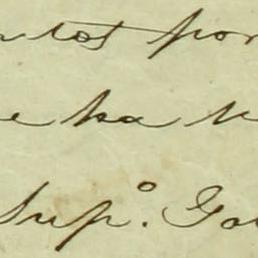 ntos por
e ha
Sup.º Go